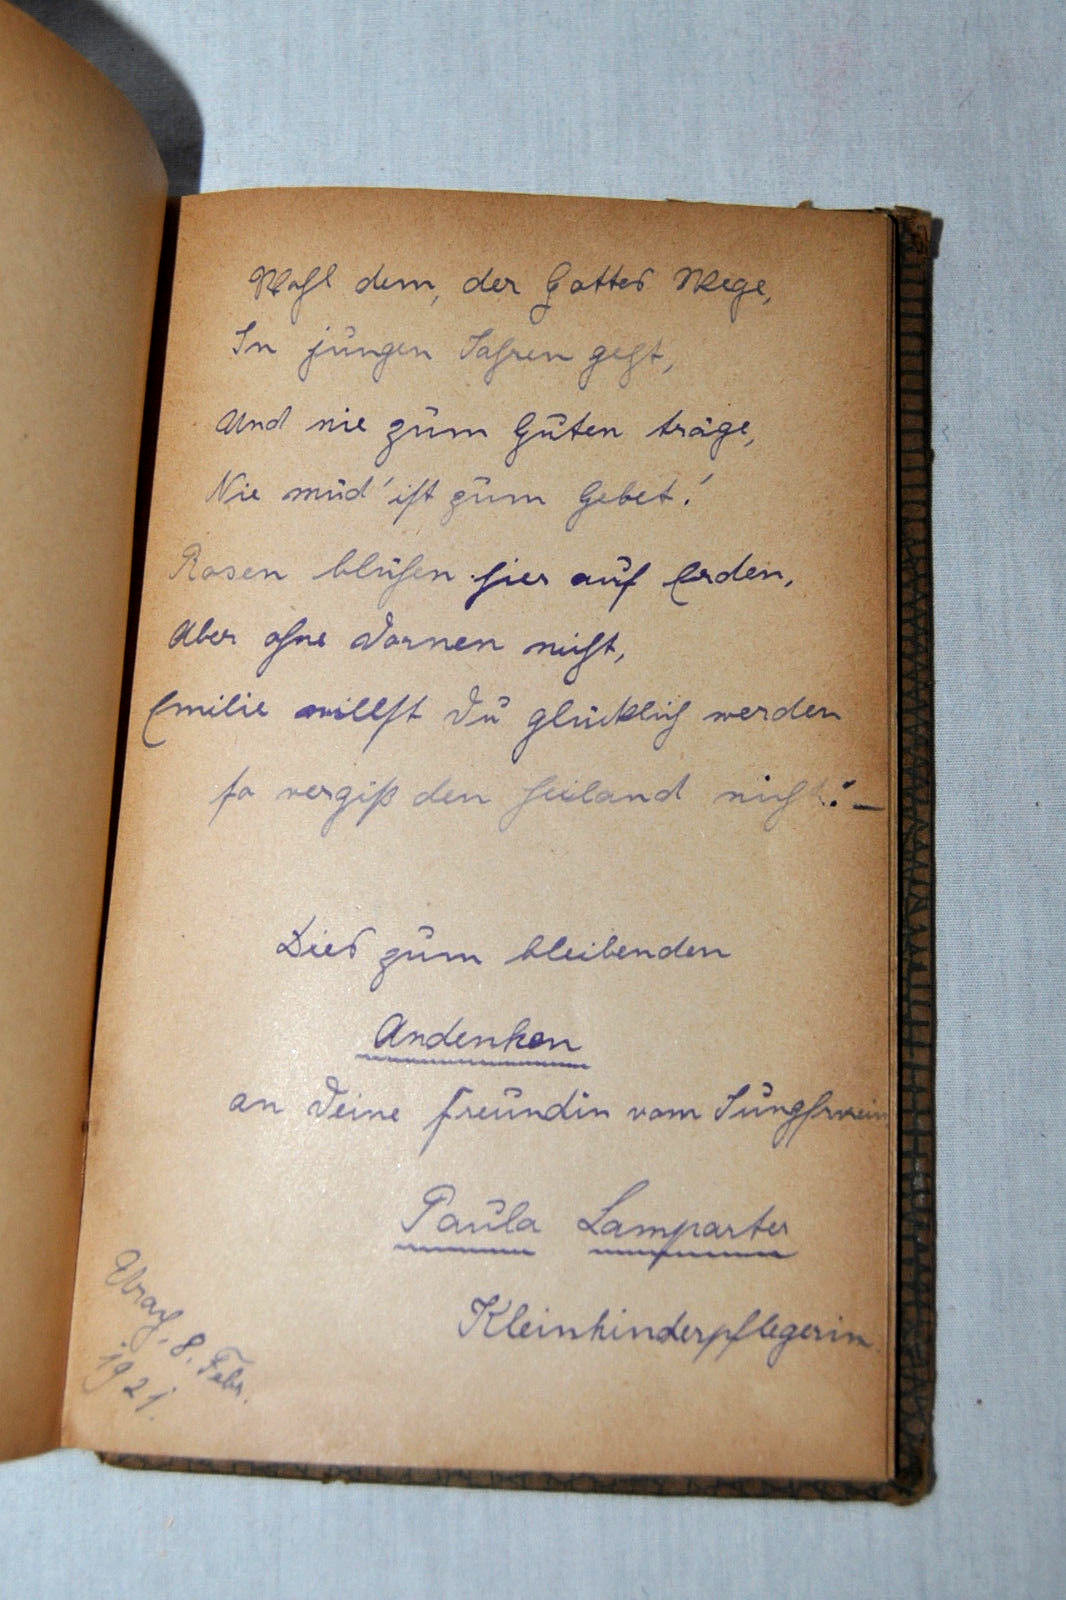 Wohl dem, der Gottes Wege,
In jungen Jahren geht,
Und nie zum Guten träge,
Nie müd' ist zum Gebet!
Rosen blühen hier auf Erden,
Aber ohne Dornen nicht,
Emilie willst Du glücklich werden
so vergiß den Heiland nicht! –
Dies zum bleibenden
Andenken
an Deine Freundin vom Jungfrverein
Paula Lamparter
Kleinkinderpflegerin
Urach, 8. Febr.
1921.